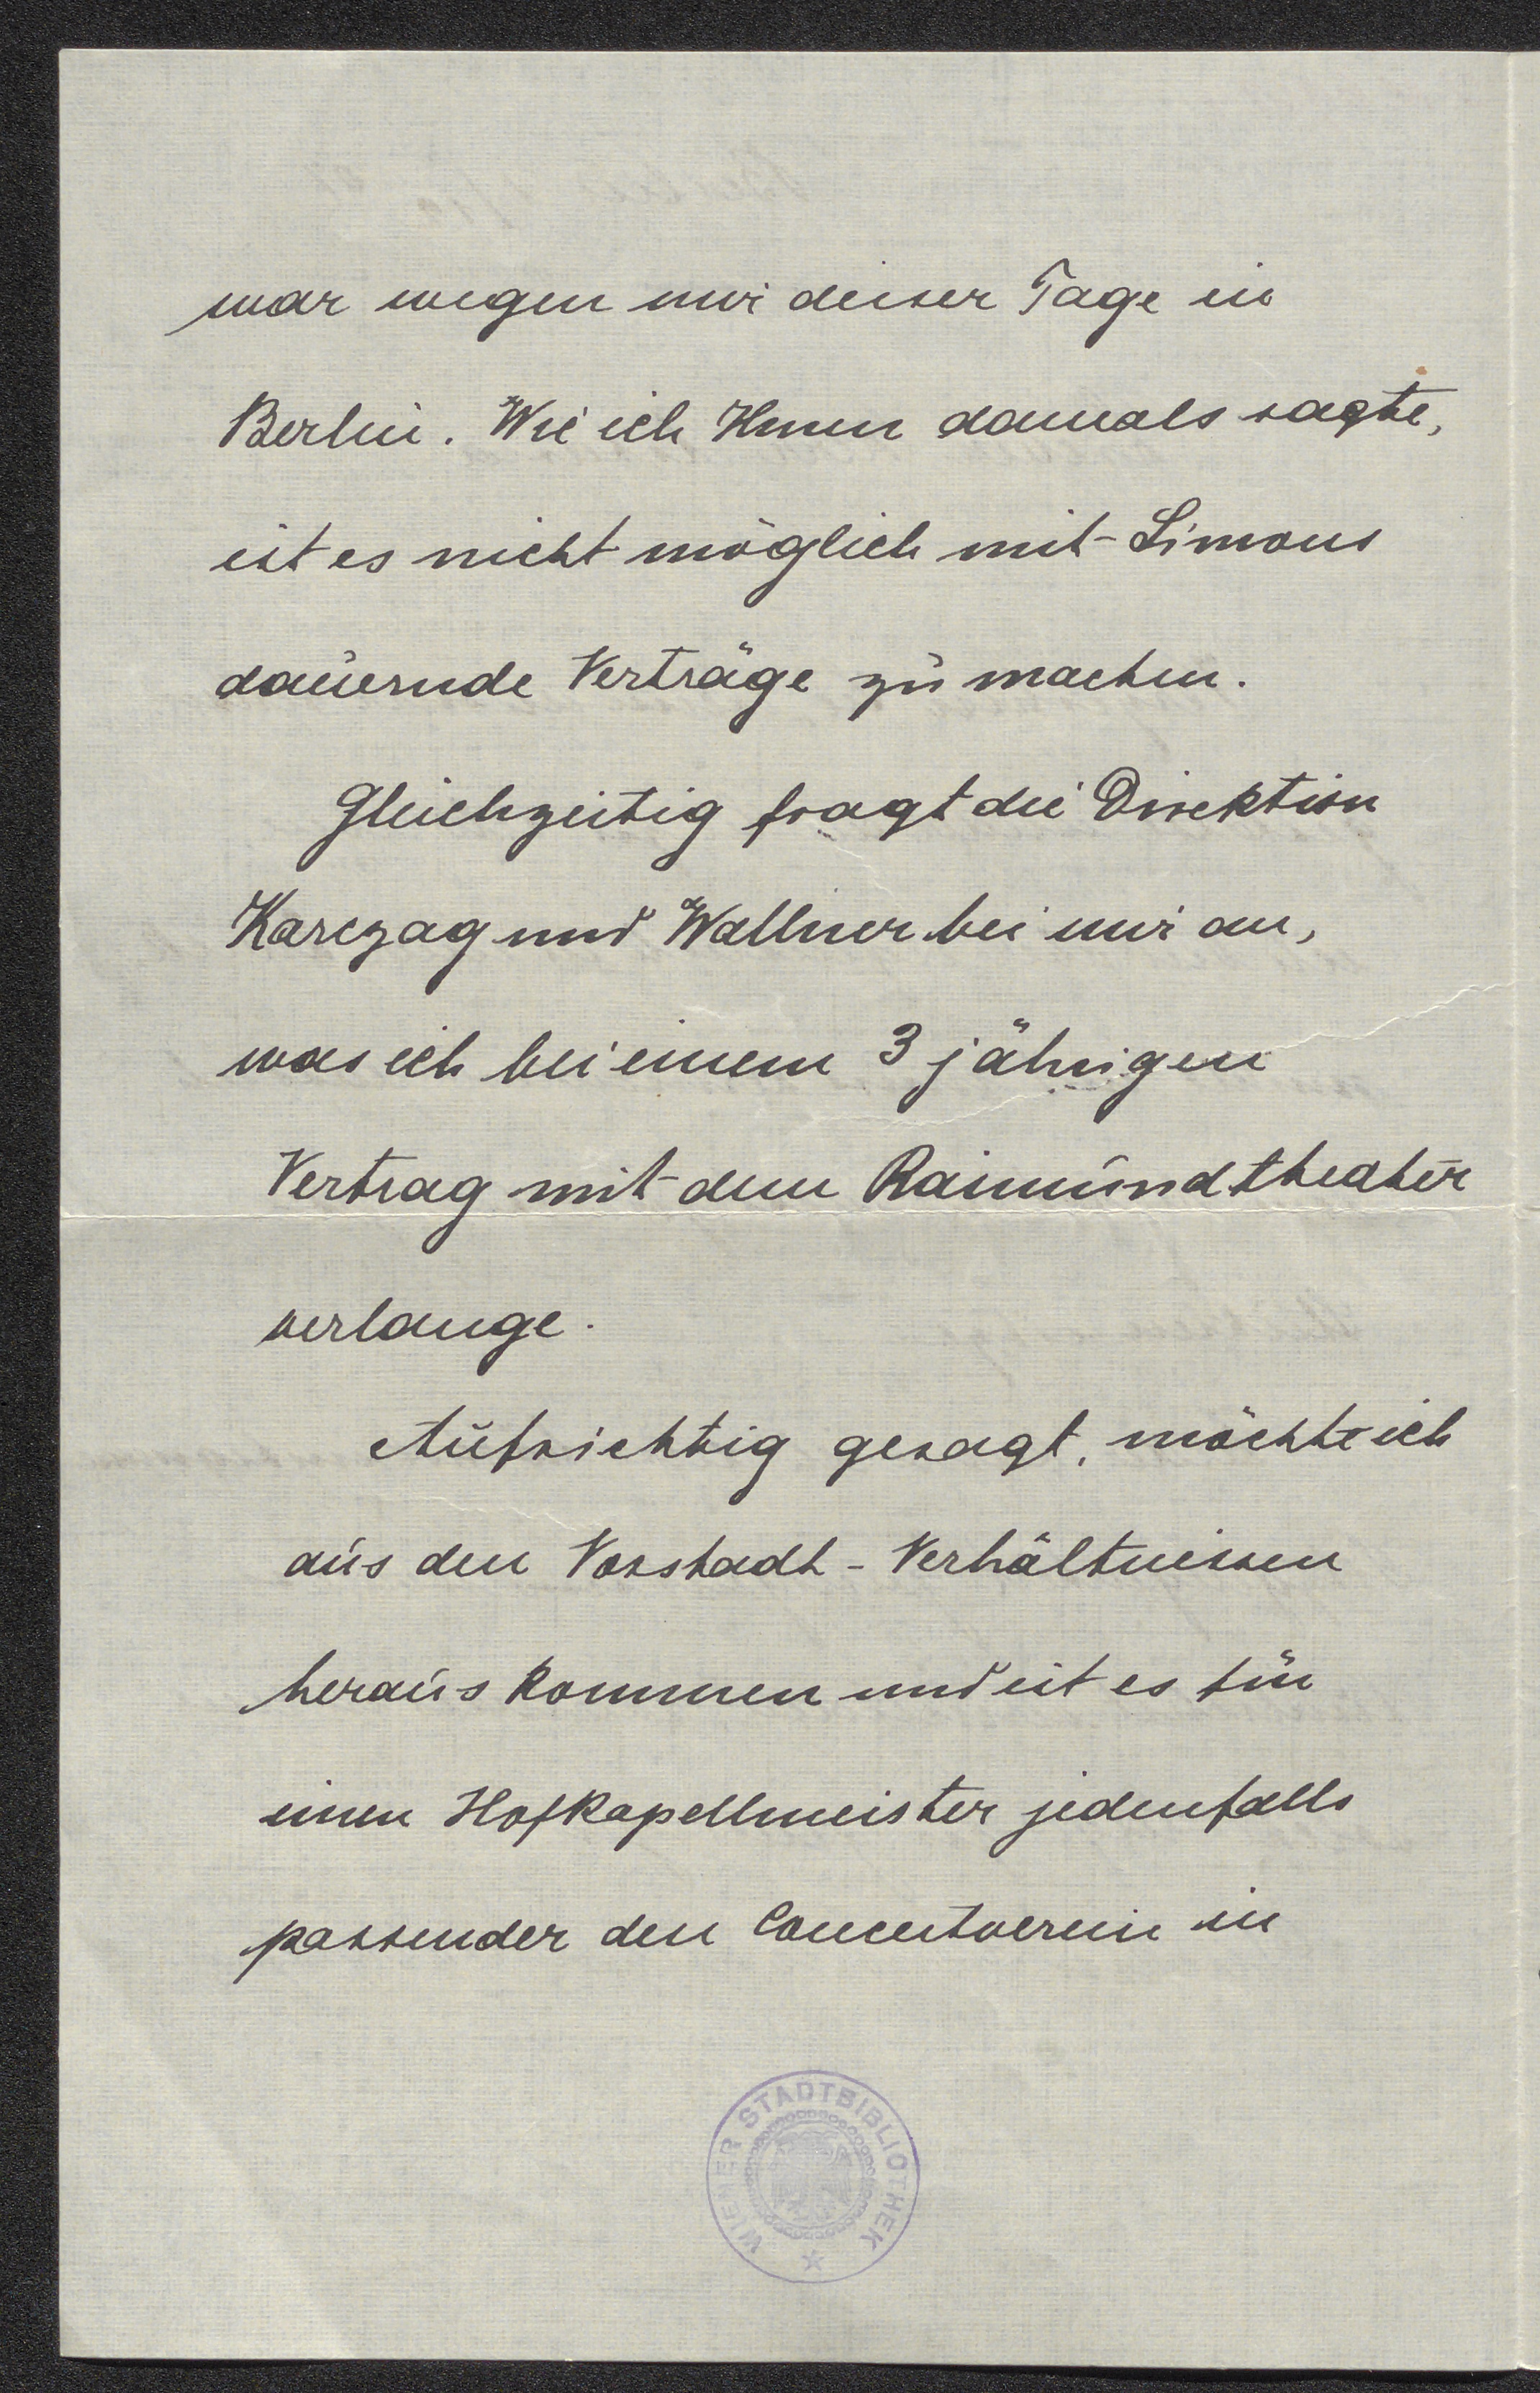 war wegen mir dieser Tage in
Berlin. Wie ich Ihnen damals sagte,
ist es nicht möglich mit Simons
dauernde Verträge zu machen.
Gleichzeitig fragt die Direktion
Karczag und Wallner bei mir an,
was ich bei einem 3 jährigen
Vertrag mit dem Raimundtheater
verlange.
Aufrichtig gesagt, möchte ich
aus den Vorstadt-Verhältnissen
heraus kommen und ist es für
einen Hofkapellmeister jedenfalls
passender den Concertverein in
WIENER STADTBIBLIOTHEK